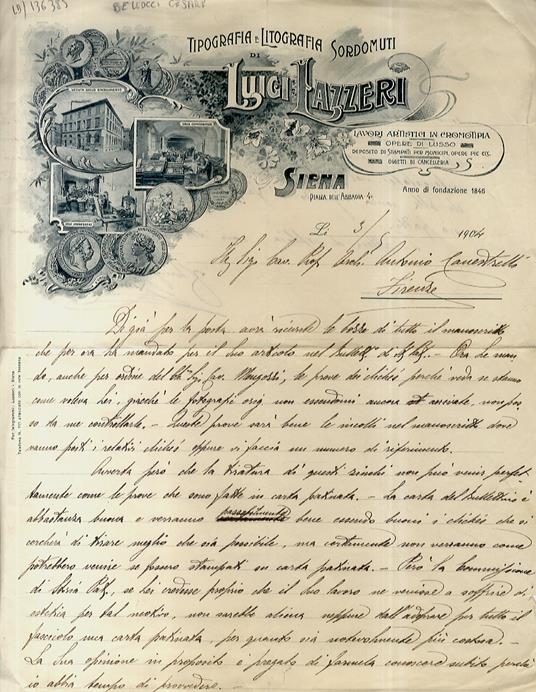 LB/136383
BELLUCCI CESARE
TIPOGRAFIA E LITOGRAFIA SORDOMUTI
DI
LUIGI LAZZERI
VEDUTA DELLO STABILIMENTO
LAVORI ARTISTICI IN CROMOTIPIA
OPERE DI LUSSO
DEPOSITO DI STAMPATI PER MUNICIPI, OPERE PIE ECC.
OGGETTI DI CANCELLERIA
SIENA
PIAZZA DELL'ABBADIA 4
Anno di fondazione 1846
Lì 3/ 1904
Ill. Sigr. Cav. Prof. Arch. Antonio Canestrelli
Firenze
Di già per la posta avrà ricevute le bozze di tutto il manoscritto
che per ora ha mandato per il Suo articolo nel Bullett. di St. Pat. - Ora Le man
do, anche per ordine del Ch. Sig. Cav. Mengozzi, le prove dei clichés perchè veda se stanno
come voleva Lei, giacchè le fotografie orig. non essendomi ancora arrivate, non pos
so da me controllarle. - Queste prove sarà bene le incolli nel manoscritto dove
vanno posti i relativi clichés oppure vi faccia un numero di riferimento.
Avverta però che la tiratura di questi zinchi non può venire perfet
tamente come le prove che sono fatte in carta patinata. - La carta del Bullettino è
abbastanza buona e verranno passabilmente bene essendo buoni i clichés che si
cercherà di tirare meglio che sia possibile, ma certamente non verranno come
potrebbero venire se fossero stampati in carta patinata. - Però la Commissione
di Storia Pat., se Lei credesse proprio che il Suo lavoro ne venisse a soffrire di
estetica per tal motivo, non sarebbe aliena neppure dall'adoprare per tutto il
fascicolo una carta patinata, per quanto sia notevolmente più costosa. -
La Sua opinione in proposito è pregato di farmela conoscere subito perchè
io abbia tempo di provvedere. -